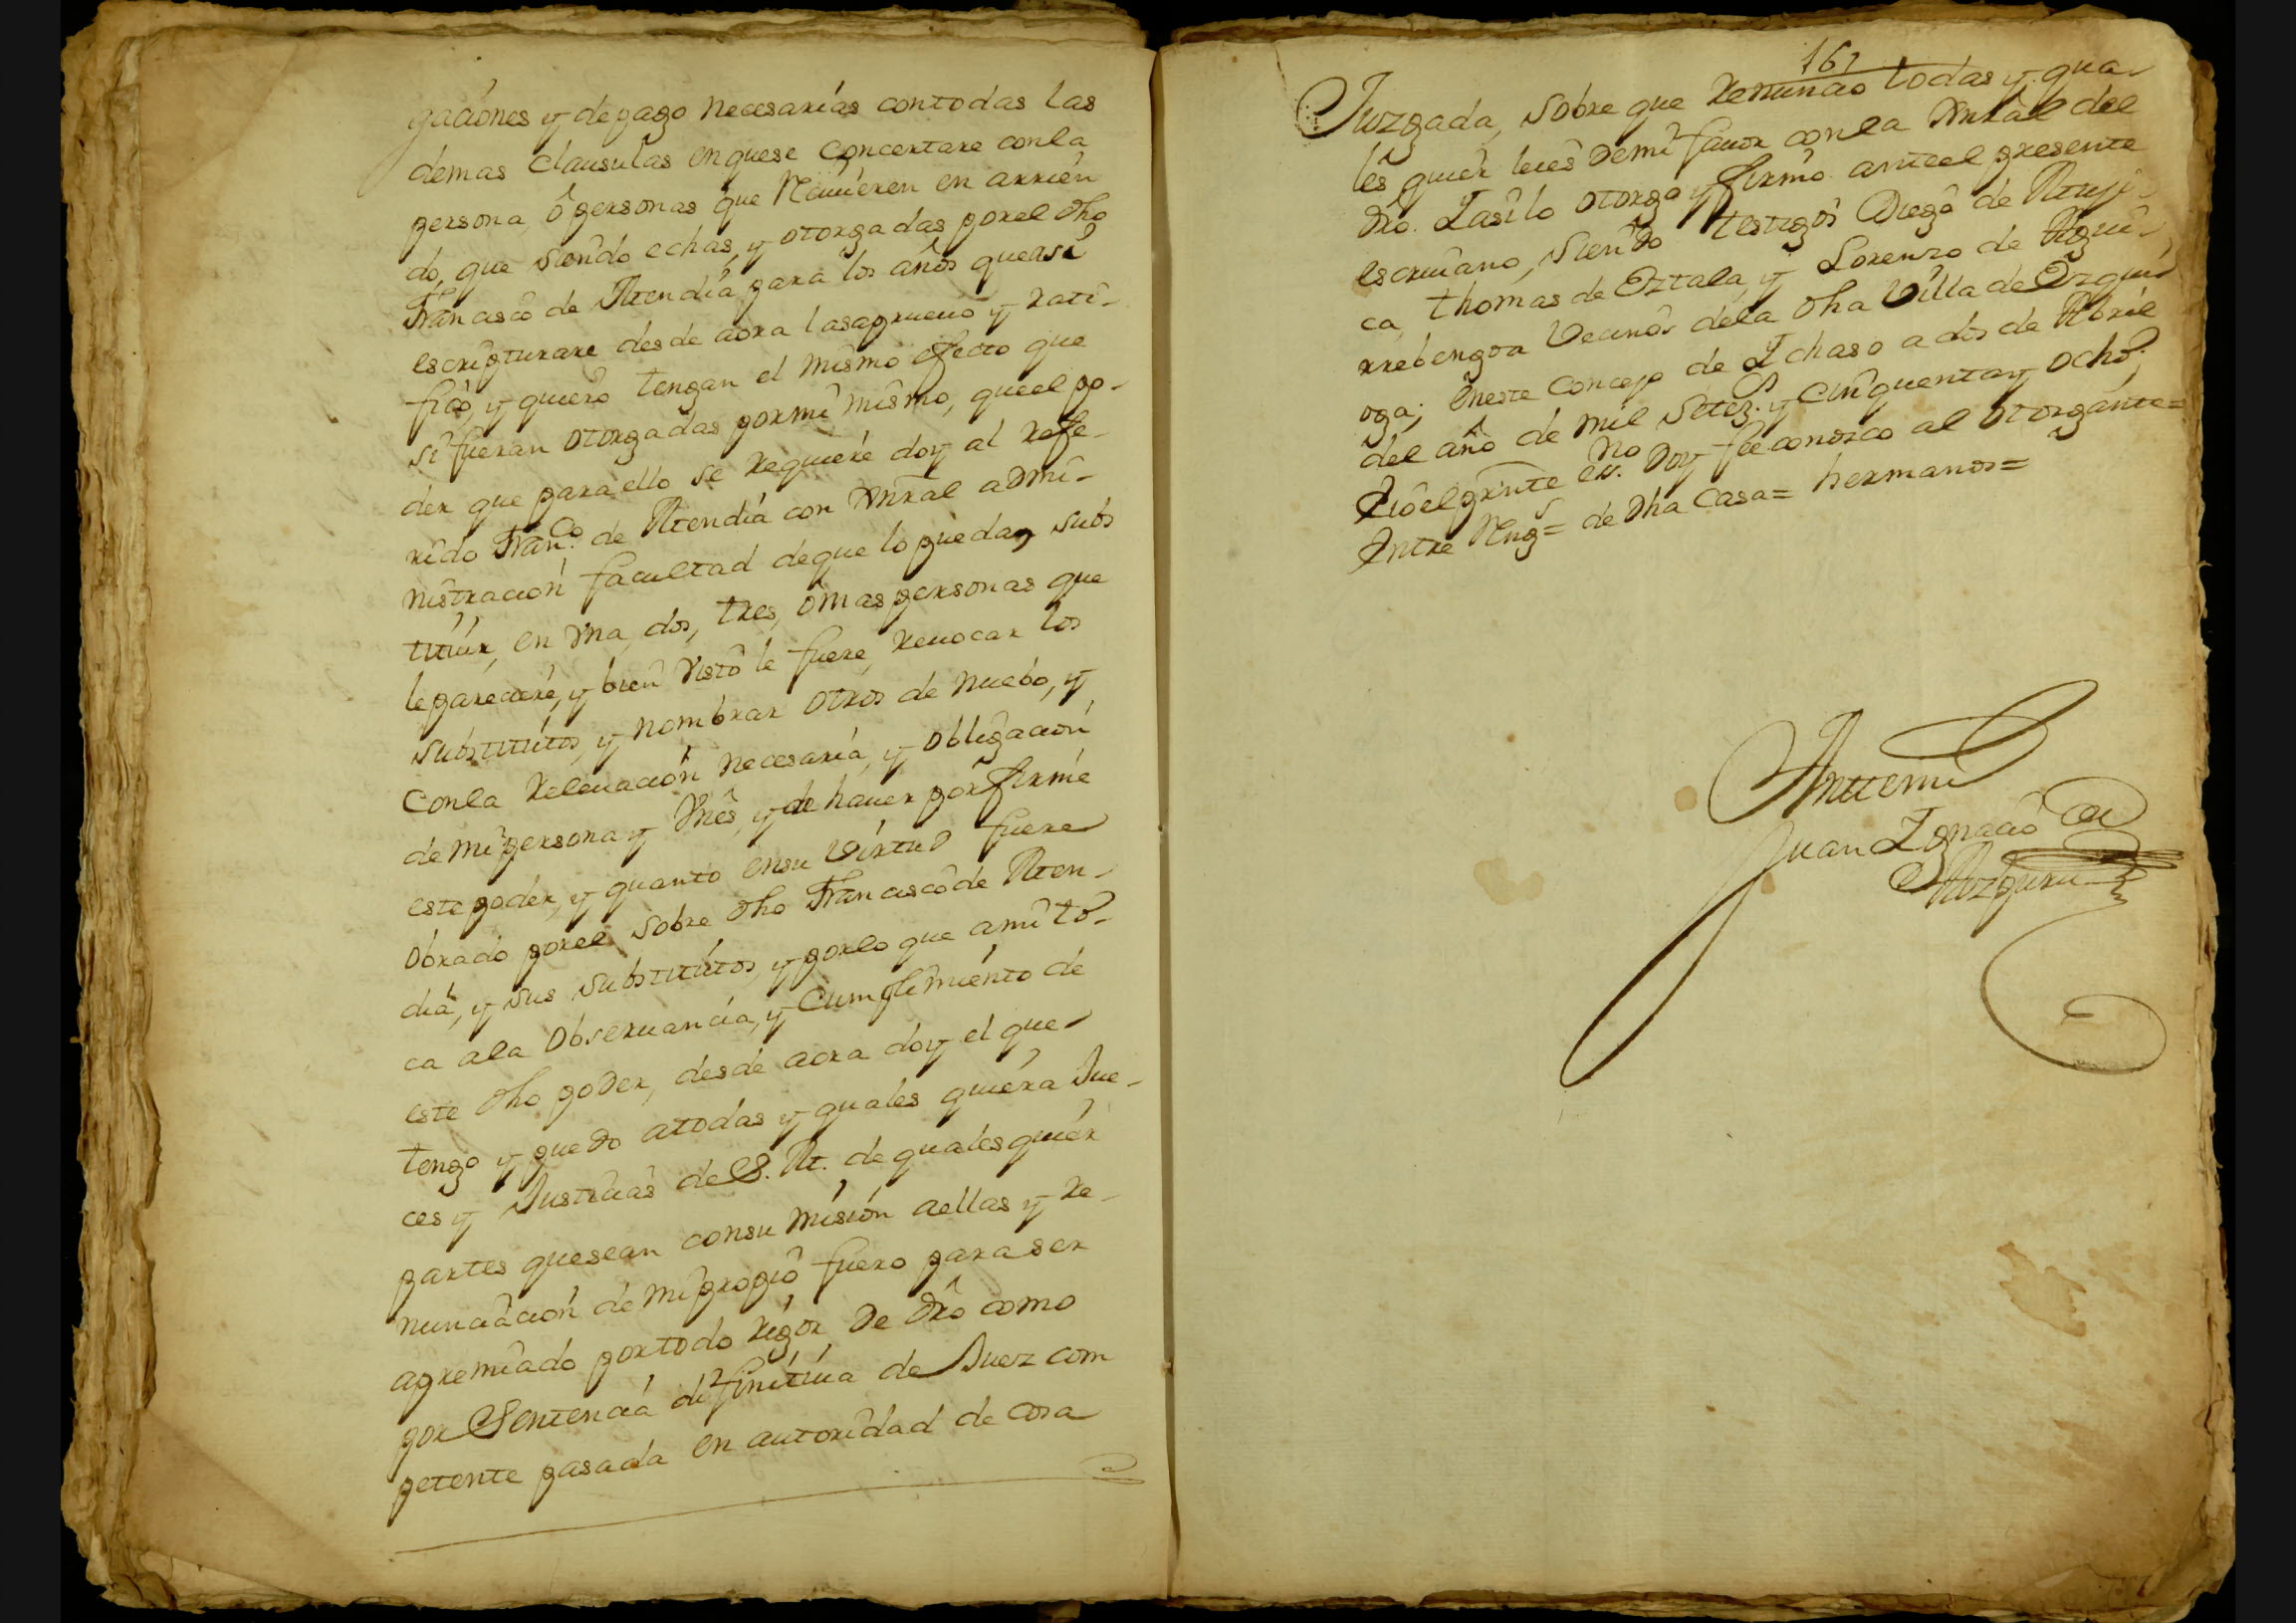 gaciones y de pago necesarias con todas las
demas clausulas en que se concertare con la
persona ô personas que reciuieren en arrien
do, que siendo echas, y otorgadas por el dho
Francisco de Atendia para los años que asi
escripturare desde aora las aprueuo y rati-
fico, y quiero tengan el mismo efecto que
si fueran otorgadas por mi mismo, que el po-
der que para ello se requiere doy al refe-
rido Franco. de Atendia con gnral admi-
nistracion facultad de que lo pueda subs
tituir, en vna, dos, tres, ô mas personas que
le pareciere, y bien visto le fuere, reuocar los
substitutos, y nombrar otros de nuebo, y
con la releuacion necesaria, y obligacion
de mi persona y vnes, y de hauer por firme
este poder, y quanto en su virtud fuere
obrado por el sobre dho Francisco de Aten-
dia, y sus substitutos, y por lo que a mi to-
ca a la obseruancia, y cumplimiento de
este dho poder, desde aora doy el que
tengo y puedo a todas y quales quiera Jue-
ces y Justicias de S. M. de quales quier
partes que sean con su mision a ellas y re-
nunciacion de mi propio fuero para ser
apremiado por todo rigor de dro como
por Sentencia difinitiua de Juez com
petente pasada en autoridad de cosa
161
Juzgada, sobre que renuncio todas y qua
les quier leies de mi fauor con la gnral del
dro. Y asi lo otorgo y firmo ante el presente
escriuano, siendo testigos Diego de
ca, Thomas de Oztala, y Lorenzo de Agui-
rrebengoa vecinos de la dha villa de Ezqui
oga; en este concejo de Ychaso a dos de Abril
del año de mil setez.s y cinquenta y ocho;
Yo el prnte es.no doy fee conozco al otorgante=
Entre Reng.s= de dha casa= hermanos=
Antemi
Juan Ignacio de